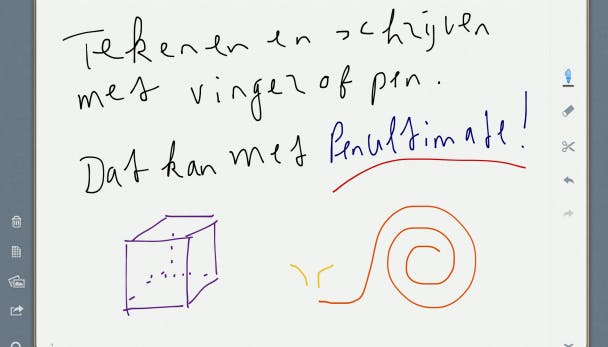 Tekenen en schrijven
met vinger of pen.
Dat kan met Penultimate!